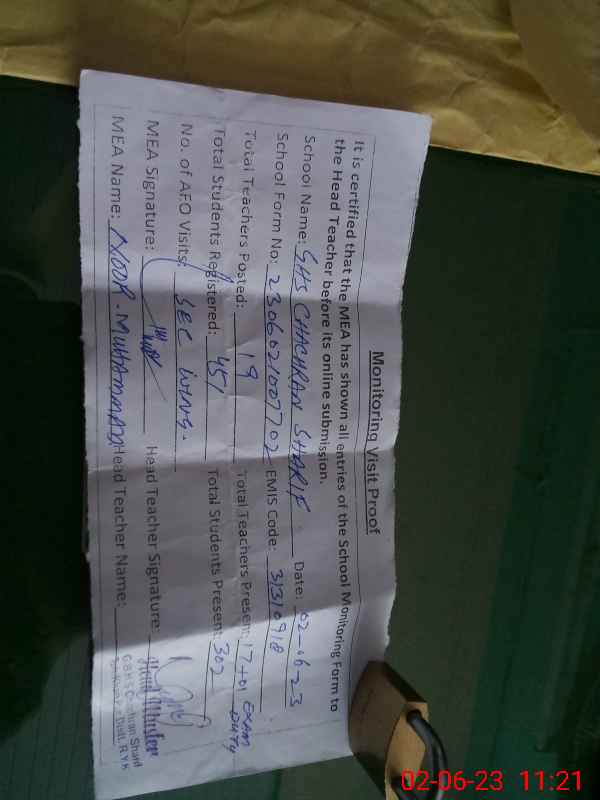 Monitoring Visit Proof
It is certified that the MEA has shown all entries of the School Monitoring Form to
the Head Teacher before its online submission.
School Name: GHS CHACHRAN SHARIF Date: 02-06-23
School Form No: 2306021007702 EMIS Code: 31310918
Total Teachers Posted: 19 Total Teachers Present: 17+01 EXAM DUTY
Total Students Registered: 451 Total Students Present: 302
No. of AEO Visits: SEC WING.
MEA Signature: Head Teacher Signature:
MEA Name: NOOR. MUHAMMAD Head Teacher Name:
Head Master
Chachran Sharif
R.Y.K
02-06-23 11:21